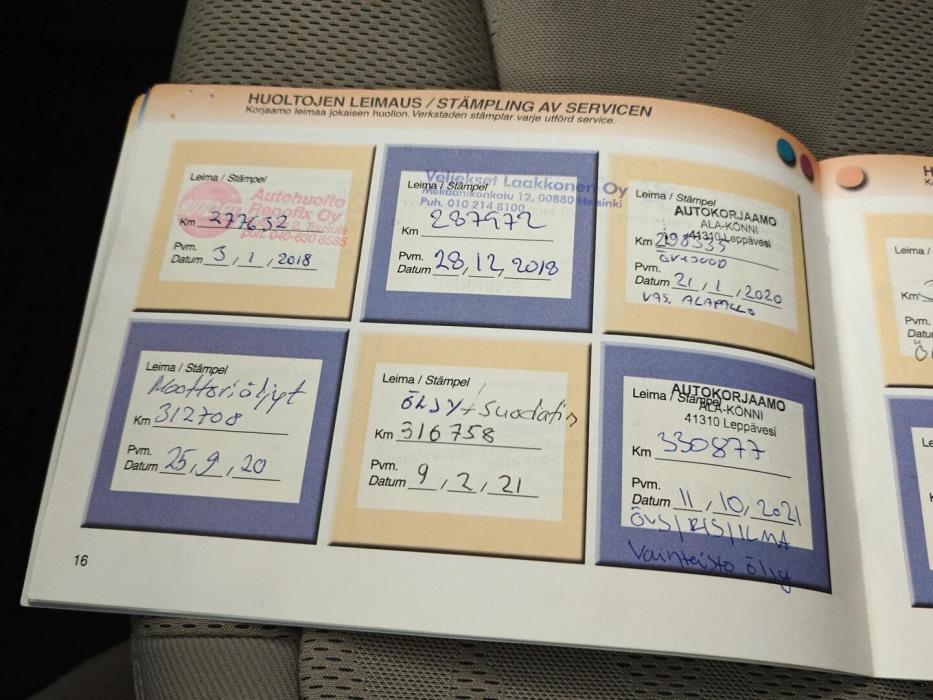 HUOLTOJEN LEIMAUS / STÄMPLING AV SERVICEN
Korjaamo leimaa jokaisen huollon. Verkstaden stämplar varje utförd service.
Leima / Stämpel
Autohuolto
Renofix Oy
2, Tuusula
puh. 040-630 8585
Km 277652
Pvm.
Datum 3, 1, 2018
Leima / Stämpel
Veljekset Laakkonen Oy
Mekaanikonkatu 12, 00880 Helsinki
Puh. 010 214 8100
Km 287972
Pvm.
Datum 28, 12, 2018
Leima / Stämpel
AUTOKORJAAMO
ALA-KÖNNI
41310 Leppävesi
Km 298335
Pvm.
Datum 21, 1, 2020
VAS.
Leima / Stämpel
Moottoriöljyt
Km 312708
Pvm.
Datum 25, 9, 20
Leima / Stämpel
ÖLJY + Suodatin
Km 316758
Pvm.
Datum 9, 2, 21
Leima / Stämpel
AUTOKORJAAMO
ALA-KÖNNI
41310 Leppävesi
Km 330877
Pvm.
Datum 11, 10, 2021
ÖVS/RS/ILMA
Vaihteisto öljy
16
H
Leima
Km
Pvm.
Datu
Le